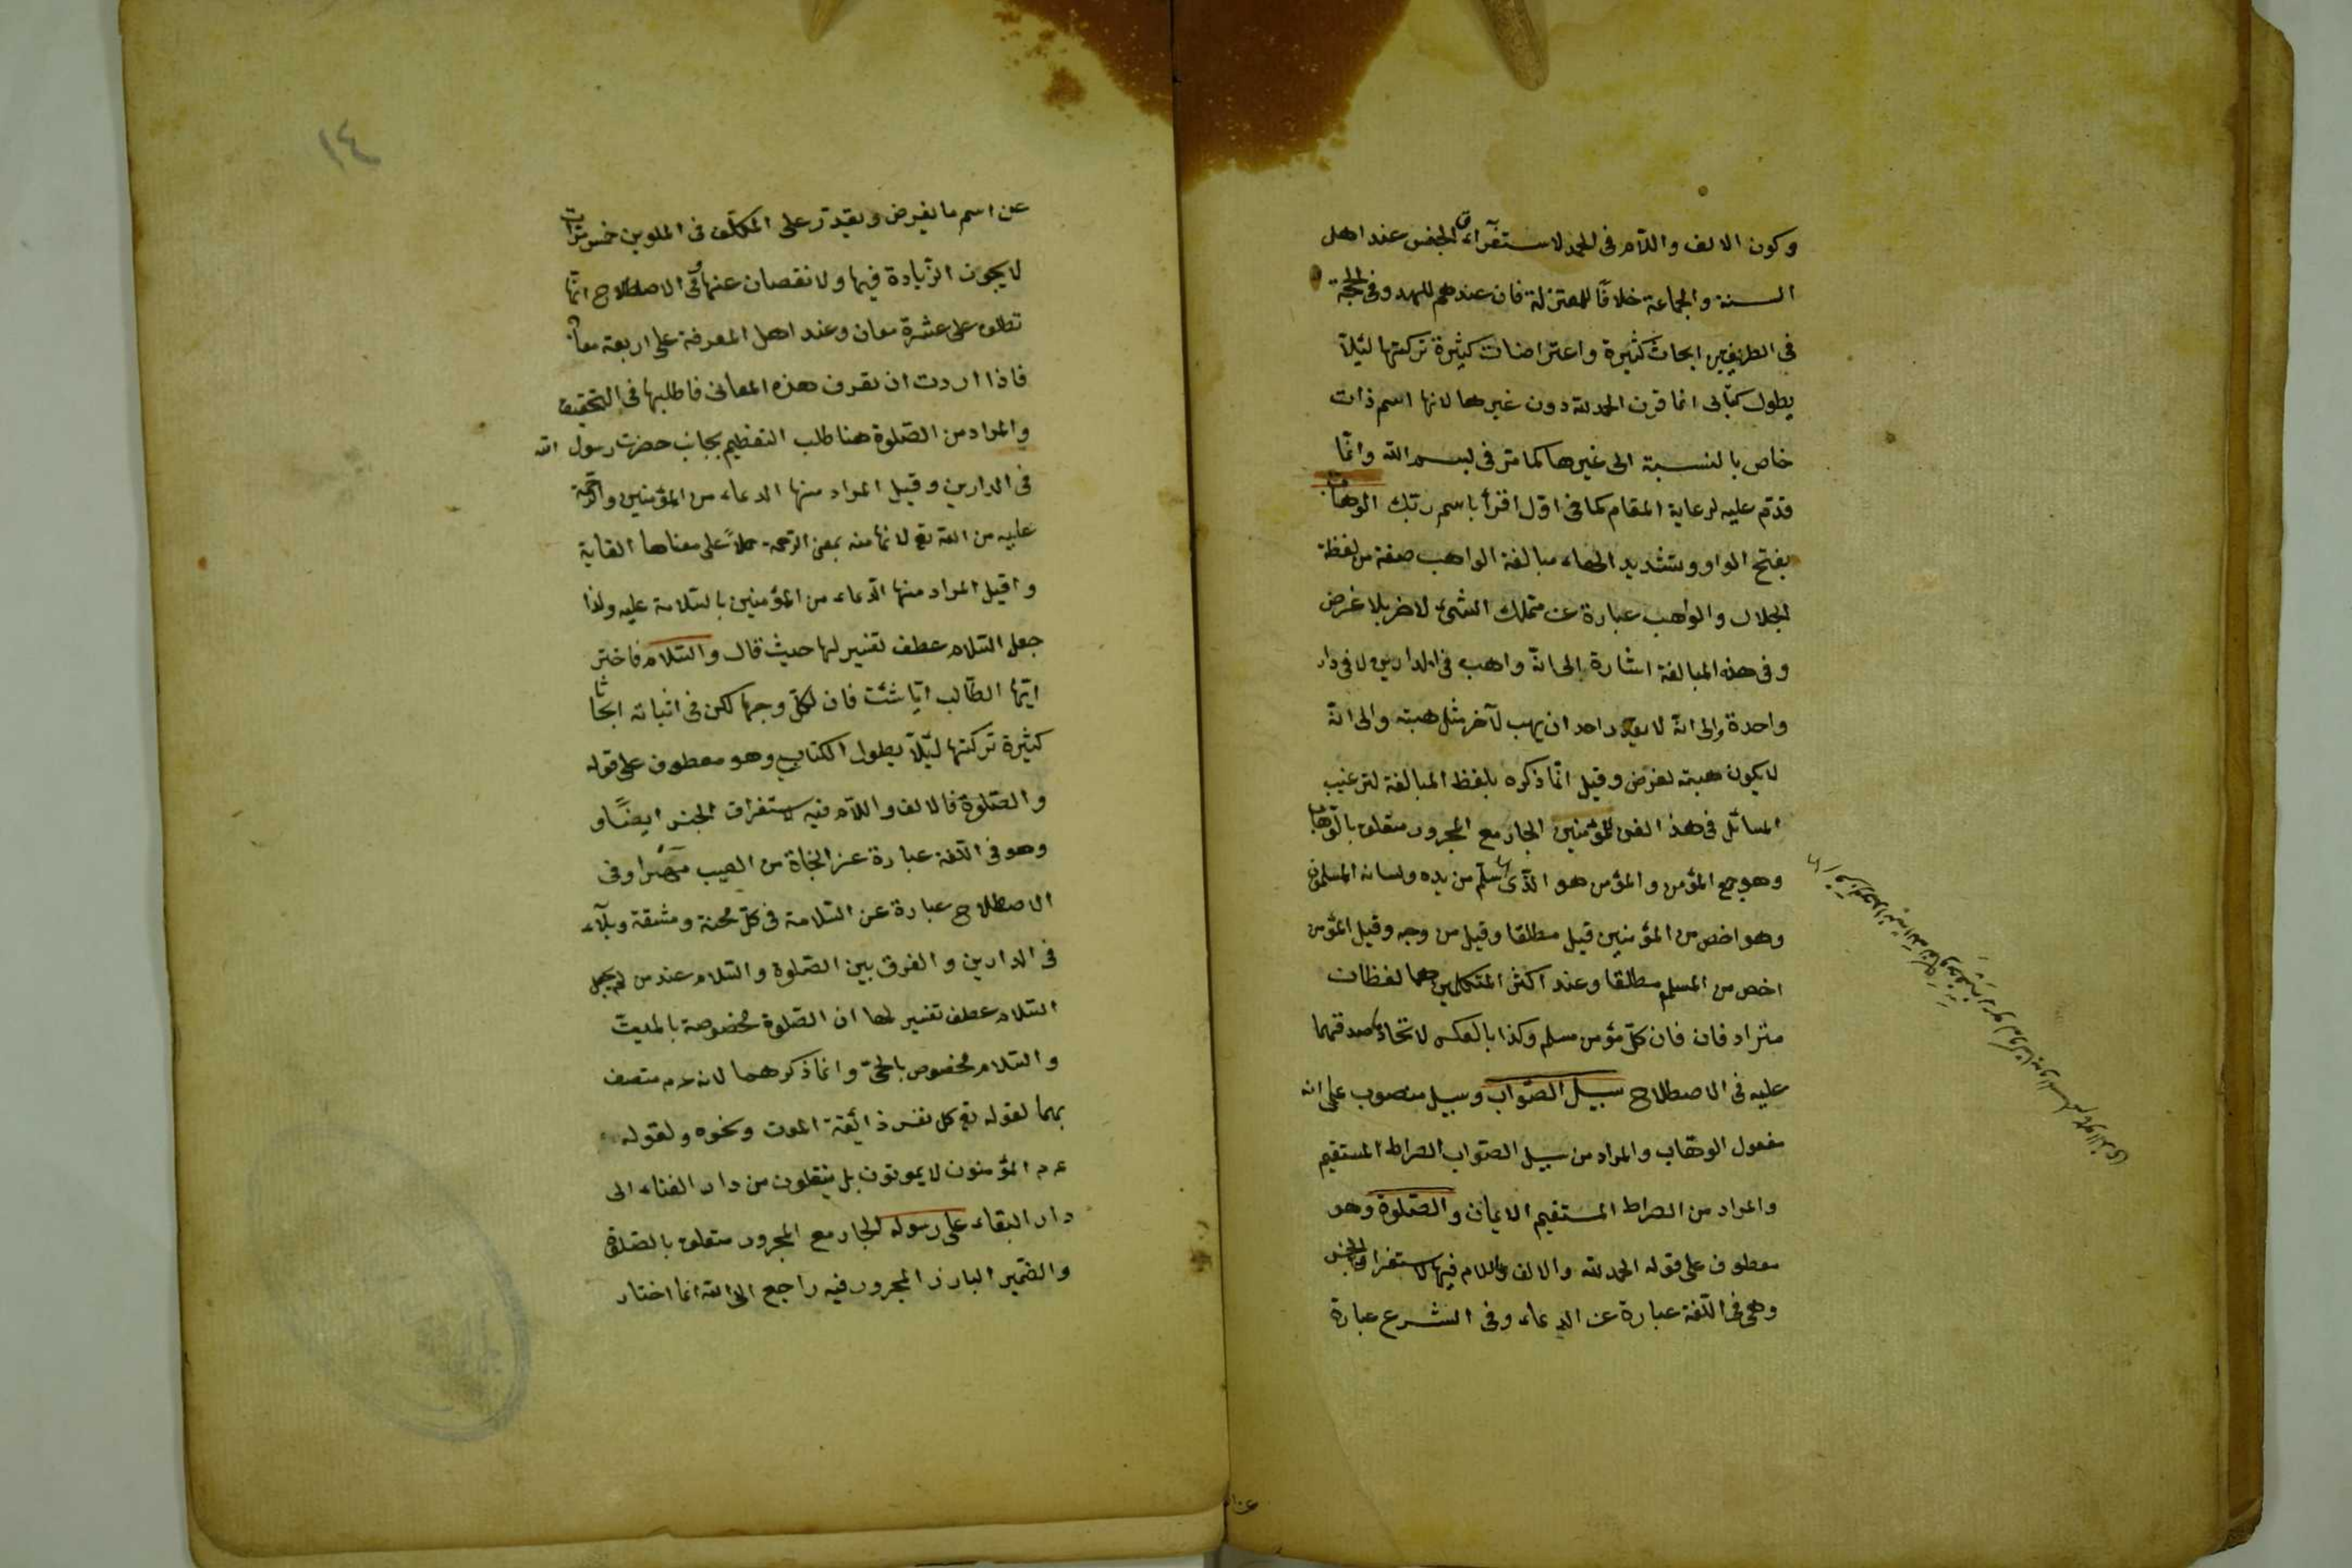 وكون الالف واللام فى الحمد لاستغراق الجنس عند اهل
السنة والجماعة خلافًا للمعتزلة فان عندهم للعهد وفى الحجة
فى الطريفين ابحاث كثيرة واعتراضات كثيرة تركتها لئلا
يطول كتابى انما قرن الحمد لله دون غيرها لانها اسم ذات
خاص بالنسبة الى غيرها كما مر فى بسم الله وانّما
قدّم عليه لرعاية المقام كما فى اوّل اقرأ باسم ربّك الوهاب
بفتح الواو وتشديد الهاء مبالغة الواهب صفة من لفظة
الجلال والواهب عبارة عن متملك الشىء لاخر بلا غرض
وفى هذه المبالغة اشارة الى انّه واهب فى الدارين لا فى دار
واحدة والى انّه لا يقدر احد ان يهب لآخر مثل هبته والى انّه
لا يكون هبته لغرض وقيل انّما ذكره بلفظ المبالغة لترغيب
المسائل فى هذ الفن للمؤمنين الجار مع المجرور متعلق بالوّهاب
وهو جمع المؤمن والمؤمن هو الذّى سلم من يده ولسانه المسلمون
وهو اخص من المؤمنين قيل مطلقا وقيل من وجه وقيل المؤمن
اخص من المسلم مطلقا وعند اكثر المتكلمين هما لفظان
متراد فان فان كلّ مؤمن مسلم وكذا بالعكس لاتحاد صدقهما
عليه فى الاصطلاح سبيل الصّواب وسبيل منصوب على انه
مفعول الوهّاب والمراد من سبيل الصّواب الصراط المستقيم
والمراد من الصراط المستقيم الايمان والصّلوة وهو
معطوف على قوله الحمد لله والالف واللام فيها لاستغراق الجنس
وهى فى اللّغة عبارة عن الدعاء وفى الشرع عبارة
١٤
عن اسم ما يفرض ويقدّر على المكلّف فى الملوين خمس مرّات
لا يجوز الزّيادة فيها ولا نقصان عنها وفى الاصطلاح انّما
تطلق على عشرة معان وعند اهل المعرفة على اربعة معان
فاذا اردت ان تعرف هذه المعانى فاطلبها فى التحقيق
والمراد من الصّلوة هنا طلب التعظيم بجانب حضرت رسول الله
فى الدارين وقيل المراد منها الدعاء من المؤمنين والرّحمة
عليه من الله تع لانها منه بمعنى الرّحمة حملاً على معناها الغاية
واقيل المراد منها الدّعاء من المؤمنين بالسّلامة عليه ولذا
جعل السّلام عطف تفسير لها حديث قال والسّلام فاختر
ايّها الطّالب ايّا شئت فان لكلّ وجها لكن فى اثباته ابحاثا
كثيرة تركتها ليّلا يطول الكتاب وهو معطوف على قوله
والصّلوة فالالف واللّام فيه لاستغراق الجنس ايضًا و
وهو فى اللّغة عبارة عن النجاة من العيب وفى
الاصطلاح عبارة عن السّلامة فى كلّ محنة ومشقة وبلآء
فى الدارين والفرق بين الصّلوة والسّلام عند من لم يجعل
السّلام عطف تفسير لها ان الصّلوة مخصوصة بالميت
والسّلام مخصوص بالحىّ وانما ذكرهما لانه عم متصف
بهما لقوله تع كل نفس ذائقة الموت ونحوه ولقوله
عم المؤمنون لا يموتون بل ينتقلون من دار الفناء الى
دار البقاء على رسوله الجار مع المجرور متعلق بالصّلوة
والضّمير البارز المجرور فيه راجع الى الله انما اختار